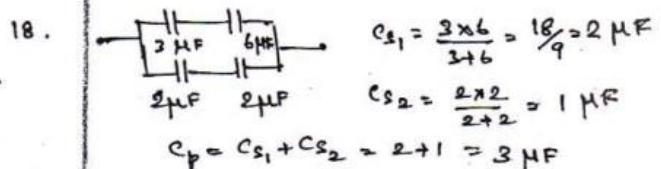 18.
3 μF 6μF
2μF 2μF
Cs₁ = 3×6/3+6 = 18/9 = 2 μF
Cs₂ = 2×2/2+2 = 1 μF
Cp = Cs₁ + Cs₂ = 2+1 = 3 μF